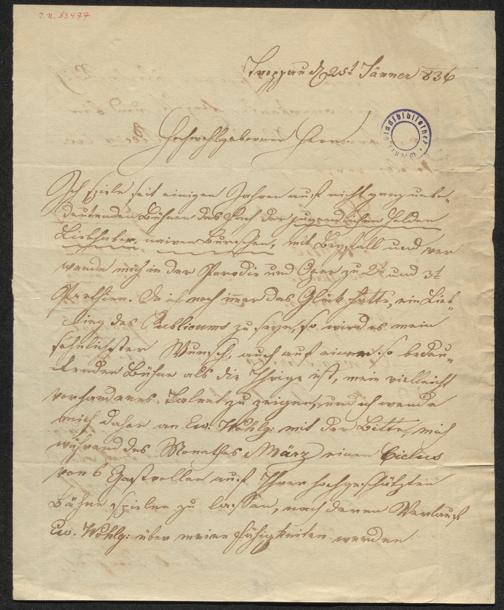 J.N. 53477
Troppau d 25t Jänner 836
Hochwohlgeborner Herr
Stadtbibliothek
Ich spiele seit einigen Jahren auf nicht ganz unbe-
deutenden Bühnen das Fach der jugendlichen Helden
Liebhaber, naiven Burschen, mit Beyfall und ver
wende mich in der Parodie und Oper zu 2t und 3t
Parthien. Da ich noch immer das Glück hatte, ein Lieb-
ling des Publicums zu seyn, so wird es mein
sehnlichster Wunsch, auch auf einer so bedeu-
tenden Bühne als die Ihrige ist, mein vielleicht
vorhandenes Talent zu zeigen, und ich wende
mich daher an Ew. Wohlg: mit der Bitte, mich
während des Monathes März einen Ciclus
von 6 Gastrollen auf Ihrer hochgeschätzten
Bühne spielen zu lassen, nach deren Verlauf
Ew. Wohlg: über meine Fähigkeiten werden